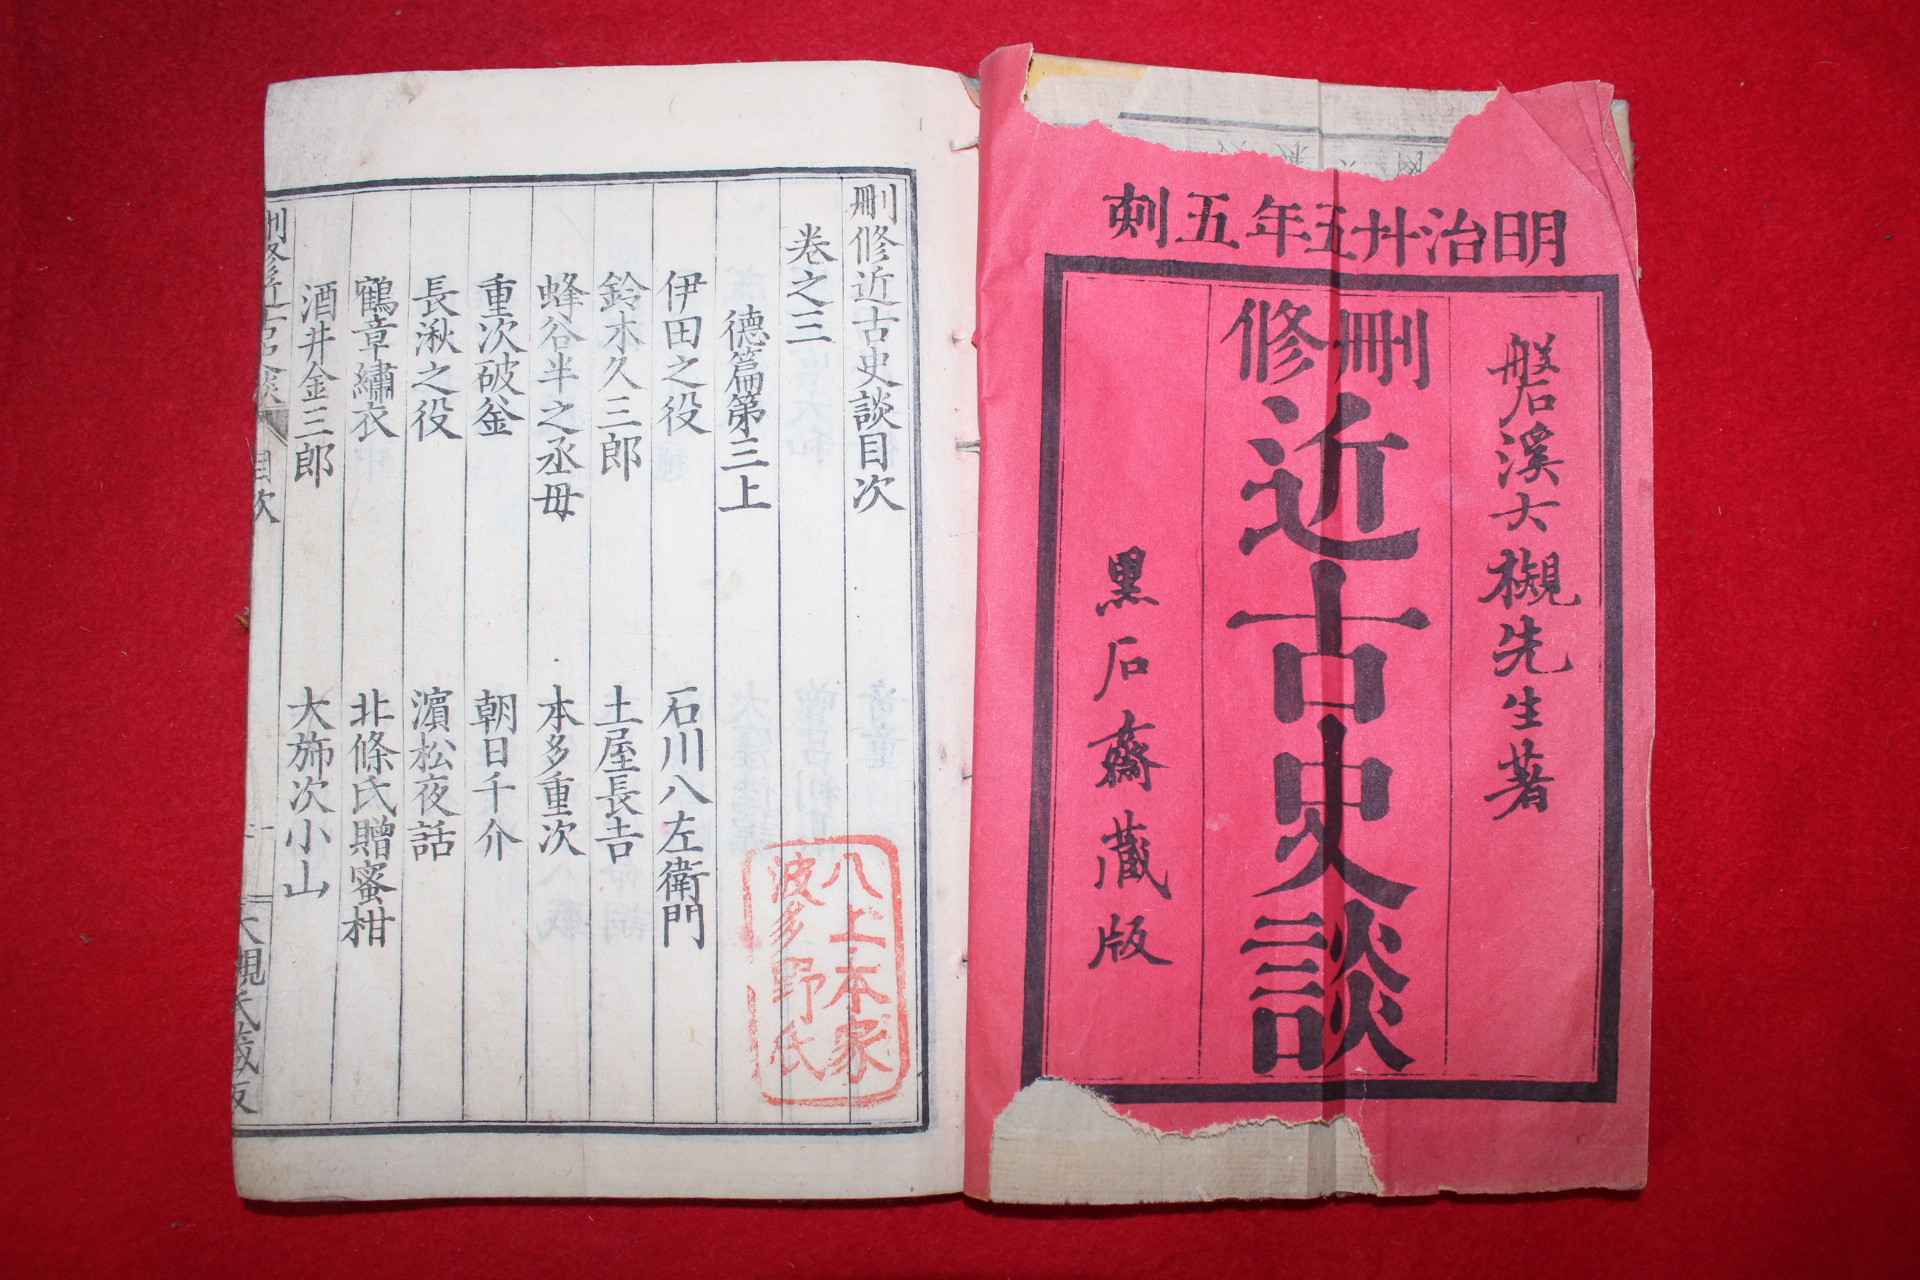 明治廿五年五刻
磐溪大槻先生著
刪修
近古史談
黒石齋蔵版
刪修近古史談目次
卷之三
德篇第三上
伊田之役 石川八左衛門
鈴木久三郎 土屋長吉
蜂谷半之丞母 本多重次
重次破釜 朝日千介
長湫之役 濵松夜話
鶴章繡衣 北條氏贈蜜柑
酒井金三郎 大斾次小山
刪修近古史談 目次
大槻氏蔵版
八上本家
波多野氏